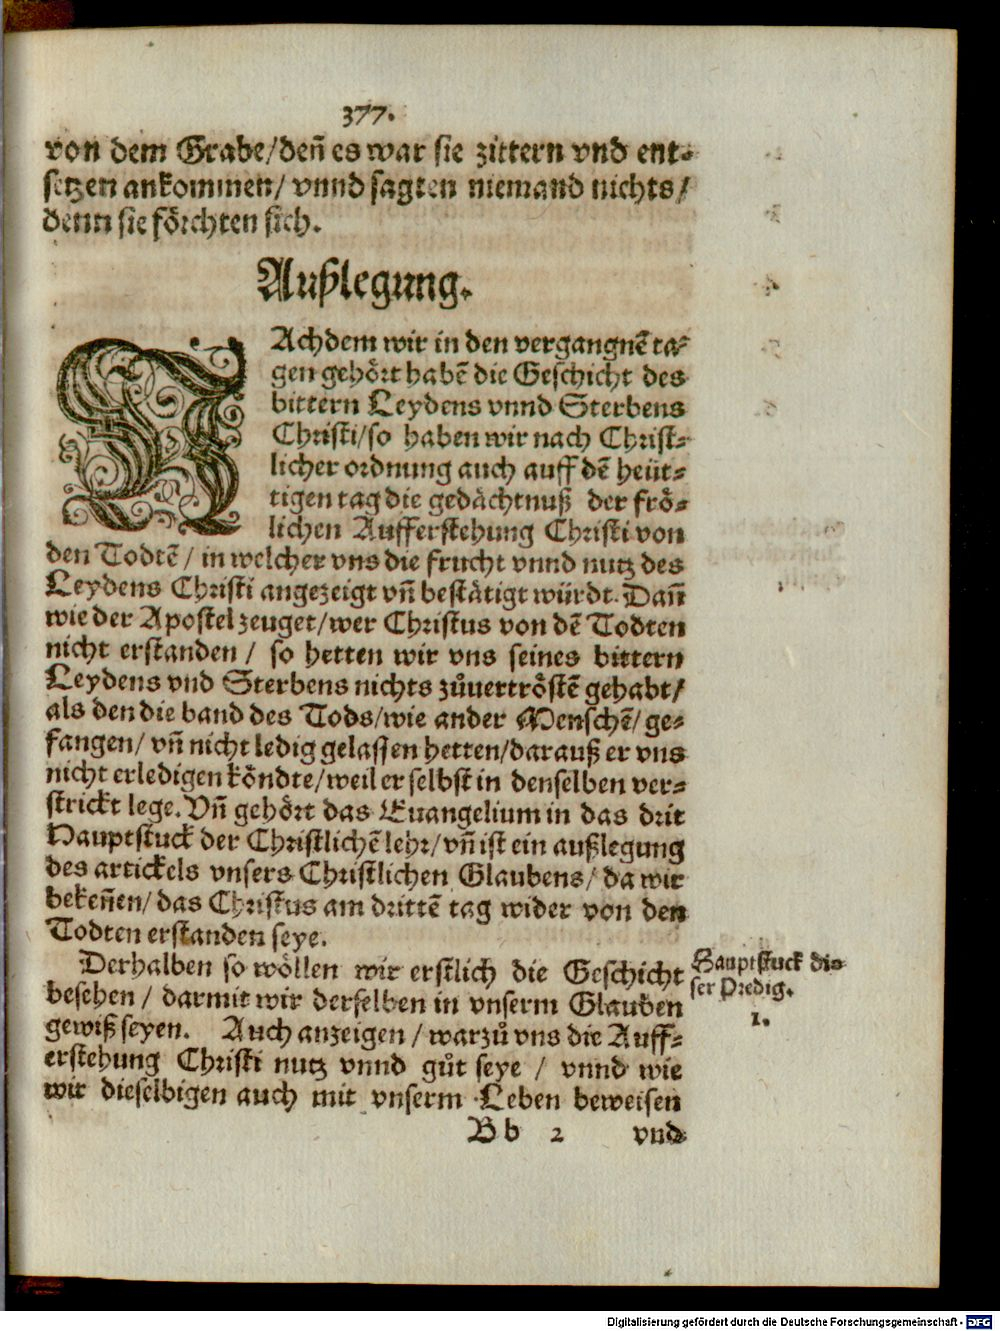 377.
von dem Grabe/ den̄ es war sie zittern vnd ent-
setzen ankommen/ vnnd sagten niemand nichts/
denn sie förchten sich.
Außlegung.
NAchdem wir in den vergangnē ta-
gen gehört habē die Geschicht des
bittern Leydens vnnd Sterbens
Christi/ so haben wir nach Christ-
licher ordnung auch auff dē heüt-
tigen tag die gedächtnuß der frö-
lichen Aufferstehung Christi von
den Todtē/ in welcher vns die frucht vnnd nutz des
Leydens Christi angezeigt vn̄ bestätigt würdt. Dan̄
wie der Apostel zeuget/ wer Christus von dē Todten
nicht erstanden/ so hetten wir vns seines bittern
Leydens vnd Sterbens nichts zůuertröstē gehabt/
als den die band des Tods/ wie ander Menschē/ ge-
fangen/ vn̄ nicht ledig gelassen hetten/ darauß er vns
nicht erledigen köndte/ weil er selbst in denselben ver-
strickt lege. Vn̄ gehört das Euangelium in das drit
Hauptstuck der Christlichē lehr/ vn̄ ist ein außlegung
des artickels vnsers Christlichen Glaubens/ da wir
beken̄en/ das Christus am drittē tag wider von den
Todten erstanden seye.
Derhalben so wöllen wir erstlich die Geschicht
besehen/ darmit wir derselben in vnserm Glauben
gewiß seyen. Auch anzeigen/ warzů vns die Auff-
erstehung Christi nutz vnnd gůt seye/ vnnd wie
wir dieselbigen auch mit vnserm Leben beweisen
Bb 2 vnd
Hauptstuck die-
ser Predig.
1.
Digitalisierung gefördert durch die Deutsche Forschungsgemeinschaft - DFG